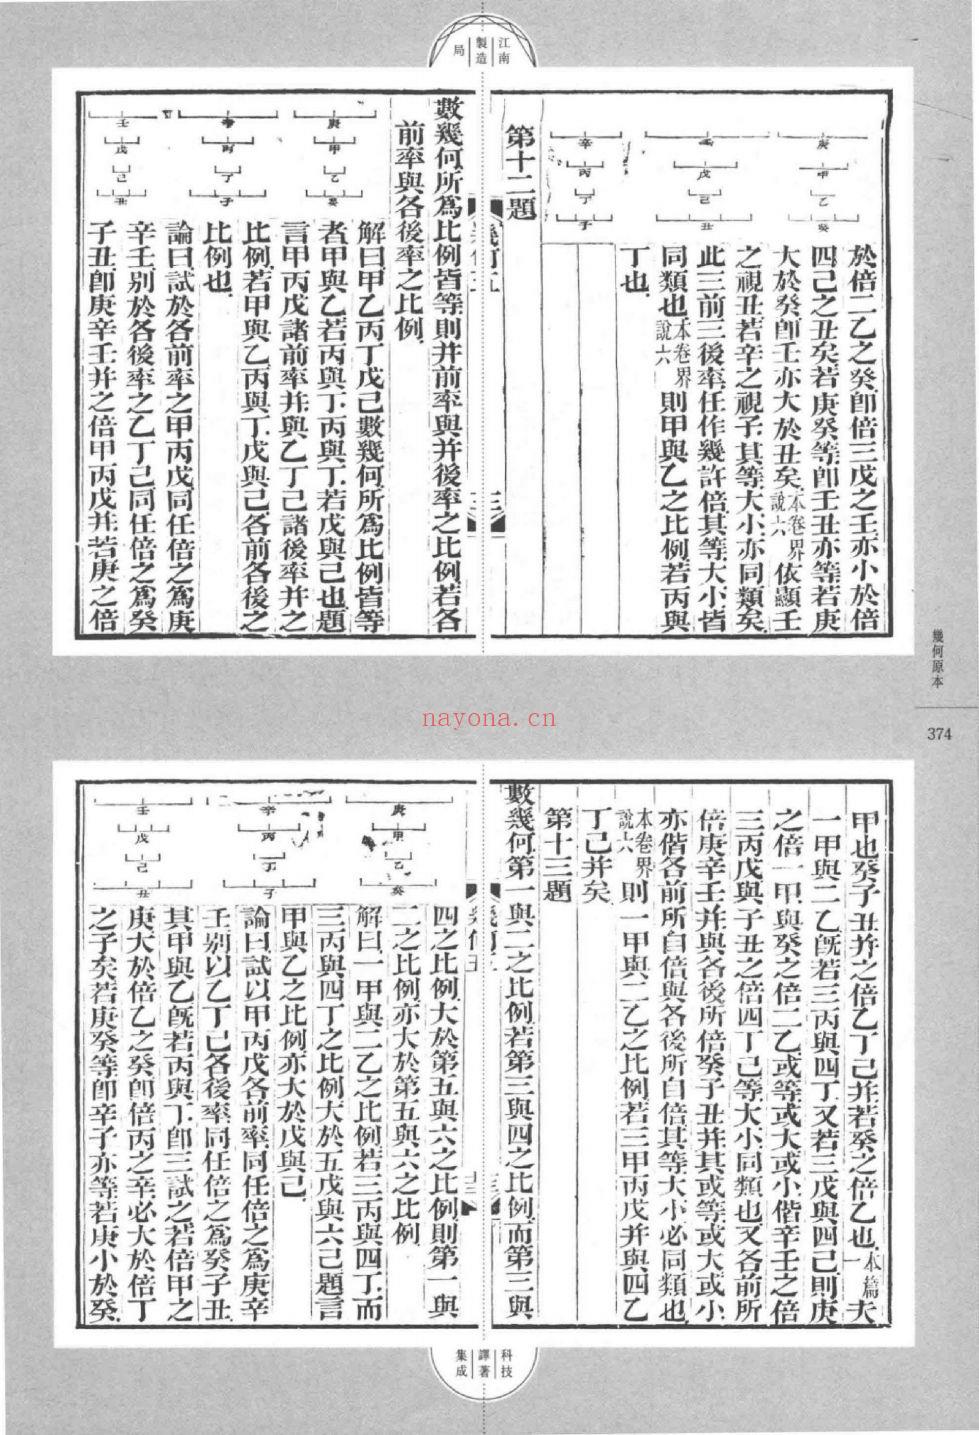 江南
製造
局
於倍二乙之癸卽倍三戊之壬亦小於倍
四己之丑矣若庚癸等卽壬丑亦等若庚
大於癸卽壬亦大於丑矣本卷界說六依顯壬
之視丑若辛之視子其等大小亦同類矣
此三前三後率任作幾許倍其等大小皆
同類也本卷界說六則甲與乙之比例若丙與
丁也
第十二題
數幾何所爲比例皆等則幷前率與幷後率之比例若各
前率與各後率之比例
解曰甲乙丙丁戊己數幾何所爲比例皆等
者甲與乙若丙與丁丙與丁若戊與己也題
言甲丙戊諸前率幷與乙丁己諸後率幷之
比例若甲與乙丙與丁戊與己各前各後之
比例也
論曰試於各前率之甲丙戊同任倍之爲庚
辛壬別於各後率之乙丁己同任倍之爲癸
子丑卽庚辛壬幷之倍甲丙戊幷若庚之倍
庚
甲
乙
癸
壬
戊
己
丑
辛
丙
丁
子
庚
甲
乙
癸
辛
丙
丁
子
壬
戊
己
丑
幾何原本
374
nayona.cn
甲也癸子丑幷之倍乙丁己幷若癸之倍乙也本篇一夫
一甲與二乙旣若三丙與四丁又若三戊與四己則庚
之倍一甲與癸之倍二乙或等或大或小偕辛壬之倍
三丙戊與子丑之倍四丁己等大小同類也又各前所
倍庚辛壬幷與各後所倍癸子丑幷其或等或大或小
亦偕各前所自倍與各後所自倍其等大小必同類也
本卷界說六則一甲與二乙之比例若三甲丙戊幷與四乙
丁己幷矣
第十三題
數幾何第一與二之比例若第三與四之比例而第三與
四之比例大於第五與六之比例則第一與
二之比例亦大於第五與六之比例
解曰一甲與二乙之比例若三丙與四丁而
三丙與四丁之比例大於五戊與六己題言
甲與乙之比例亦大於戊與己
論曰試以甲丙戊各前率同任倍之爲庚辛
壬別以乙丁己各後率同任倍之爲癸子丑
其甲與乙旣若丙與丁卽三試之若倍甲之
庚大於倍乙之癸卽倍丙之辛必大於倍丁
之子矣若庚癸等卽辛子亦等若庚小於癸
庚
甲
乙
癸
辛
丙
丁
子
壬
戊
己
丑
科技
譯著
集成